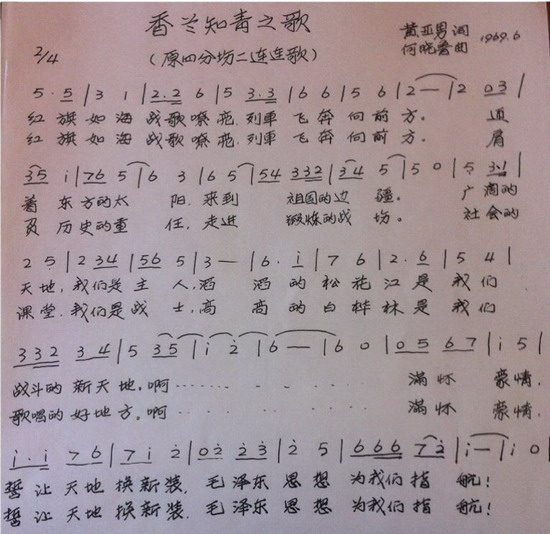 香兰知青之歌
黄亚男词
2/4 (原四分场二连连歌) 何晓鲁曲 1969.6
5·5|3 1|2·2 6|5 3·3|6 6|5 6|2—|2 03|
红旗如海 战歌嘹亮,列車飞奔向前方。 迎
红旗如海 战歌嘹亮,列車飞奔向前方。 肩
35 i|76 5|6 3|6 5|54 332|34 5|5 0|5 3·1|
着东方的太阳,来到祖国的边疆。 广阔的
负历史的重任,走进锻炼的战场。 社会的
2 5|2 34|56 5|3—|6·i|7 6|2·6|5 4|
天地,我们是主人,滔滔的松花江是我们
课堂,我们是战士,高高的白桦林是我们
332 34|5 35|i 2|6—|6 0|05 67|i 5|
战斗的新天地。啊………… 满怀豪情,
歌唱的好地方。啊………… 满怀豪情,
i·i 76|7i 2|02 23|2 5|666 72|i—|i 0|
誓让天地换新装,毛泽东思想为我们指航!
誓让天地换新装,毛泽东思想为我们指航!